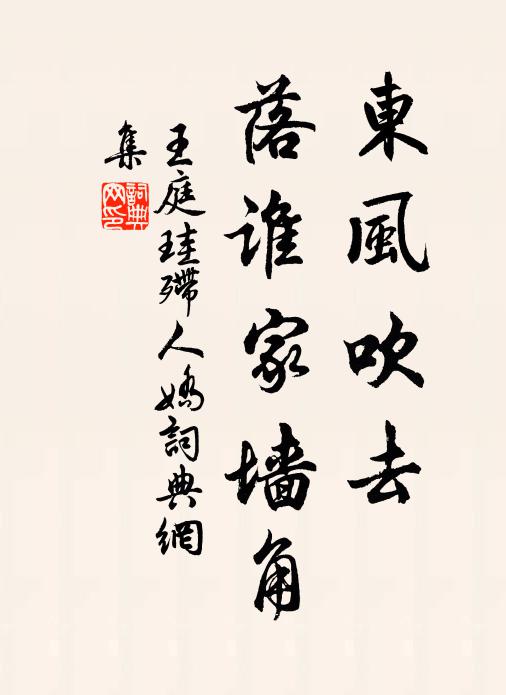 東風吹去
落誰家墙角
王庭珪殢人嬌詞典網
集
詞典
网印